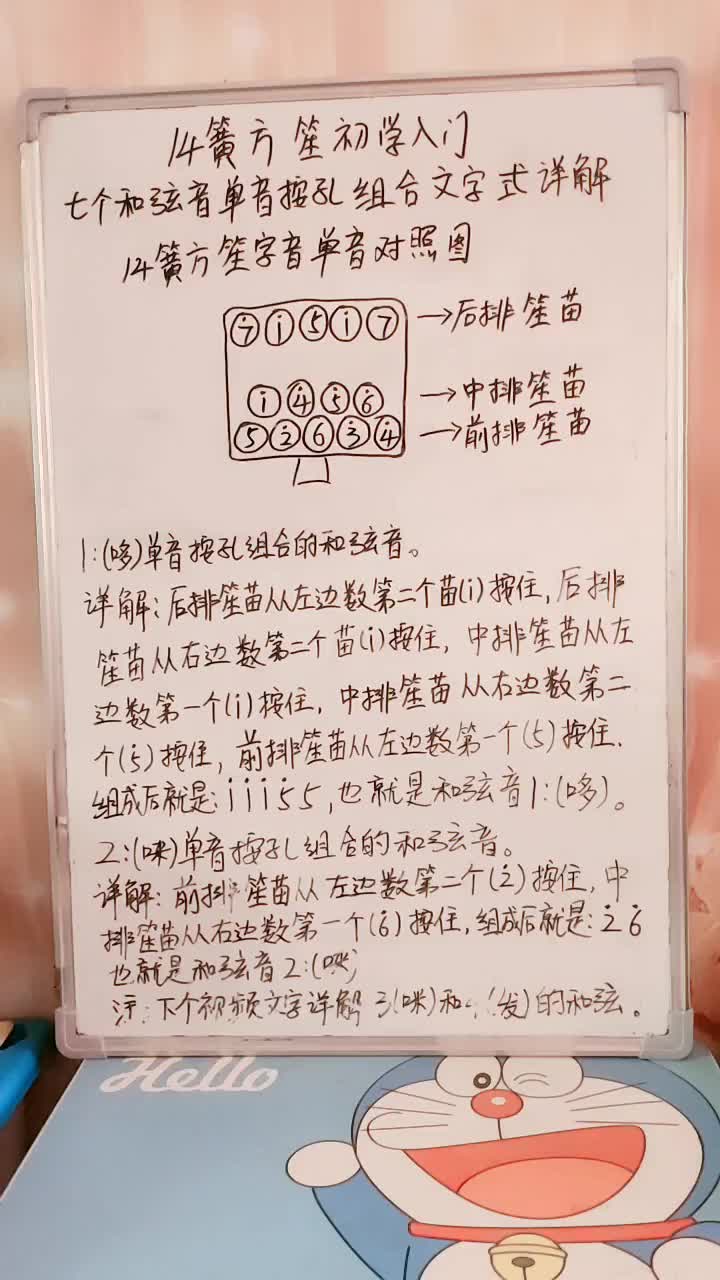 14簧方笙初学入门
七个和弦音单音按孔组合文字式详解
14簧方笙字音单音对照图
7̇ i 5̇ i 7 →后排笙苗
i 4̇ 5̇ 6̇ →中排笙苗
5 2̇ 6 3̇ 4̇ →前排笙苗
1:(哆)单音按孔组合的和弦音。
详解:后排笙苗从左边数第二个苗(i)按住,后排
笙苗从右边数第二个苗(i)按住,中排笙苗从左
边数第一个(i)按住,中排笙苗从右边数第二
个(5̇)按住,前排笙苗从左边数第一个(5)按住.
组成后就是:i i i 5̇ 5,也就是和弦音1:(哆)。
2:(唻)单音按孔组合的和弦音。
详解:前排笙苗从左边数第二个(2̇)按住,中
排笙苗从右边数第一个(6̇)按住,组成后就是:2̇ 6̇
也就是和弦音2:(唻)
注:下个视频文字详解3(咪)和 (发)的和弦。
Hello